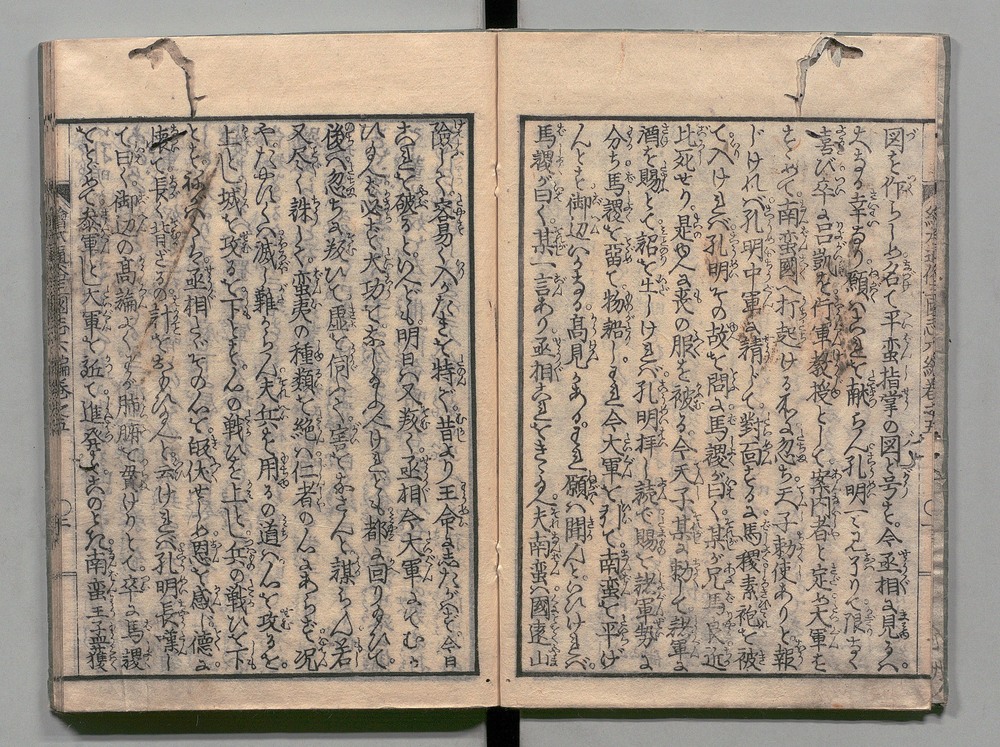 図を作らしめ名て平蛮指掌の図と号す今丞相に見るハ
大なる幸なり願ハくハこれを献らん孔明一見をはりて限なく
喜び卒に呂凱を行軍教授として案内者と定め大軍を
すゝめて南蛮國へ打起ける所に忽ち天子の勅使ありと報
じけれバ孔明中軍に請して對面するに馬稷素袍を被
て入けれバ孔明その故を問に馬稷が曰く某が兄馬良近
比死せり是ゆへに喪の服を被る今天子某に勅して諸軍に
酒を賜とて詔を出しけれバ孔明拝し読で賜を諸軍勢に
分ち馬稷を留て物語しこれ今大軍を引て南蛮を平げ
んとす御辺いかなる高見かある願ハ聞んといひけれバ
馬稷が曰く某一言あり丞相これをきゝ給へ夫南蛮ハ國遠山
険しく容易く入がたきを特で昔より王命にしたがハず今日
これを破るといへども明日ハ又叛く丞相今大軍にてむか
ひ給ハゞ必ず大功をなし給へけれども都に回り給ひて
後ハ忽ちに叛ひて虚を伺ひ害をなさんと謀らん若
又尽く誅して蛮夷の種類を絶ハ仁者の心にあらず況
やたやすくハ滅し難からん夫兵を用るの道ハ心を攻るを
上とし城を攻るを下とし心の戦ひを上とし兵の戦ひを下
とす願くハ丞相たゞその心を皈伏せしめ恩を感し徳に
懐て長く背ざるの計をおこなひ給へと云けれバ孔明長嘆し
て曰く御辺の高論よくわが肺腑を毋けりとて卒に馬稷
をとゞめて参軍とし大軍を近て進発すこのとき南蛮王孟獲